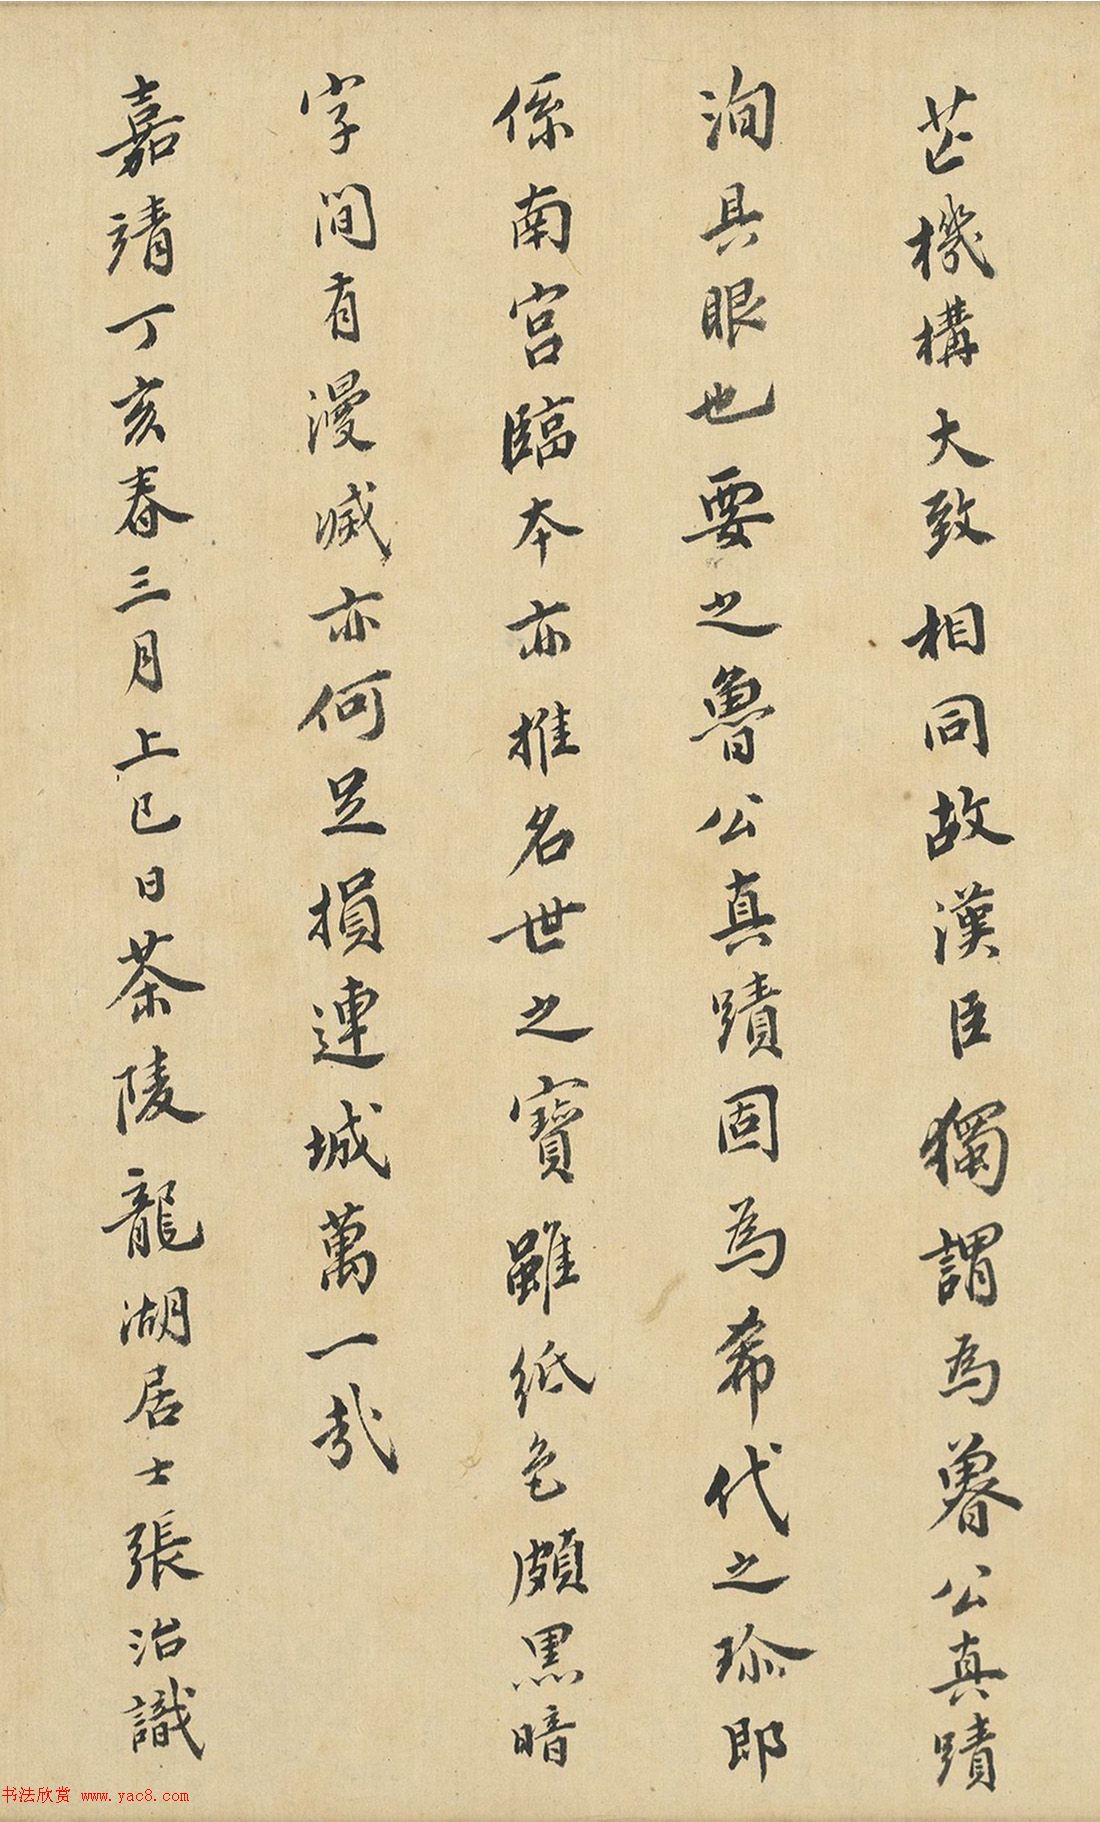 芒機構大致相同故漢臣獨謂為魯公真蹟
洵具眼也要之魯公真蹟固為希代之珎即
係南宮臨本亦推名世之寶雖紙色頗黑暗
字間有漫滅亦何足損連城萬一哉
嘉靖丁亥春三月上巳日茶陵龍湖居士張治識
书法欣赏 www.yac8.com